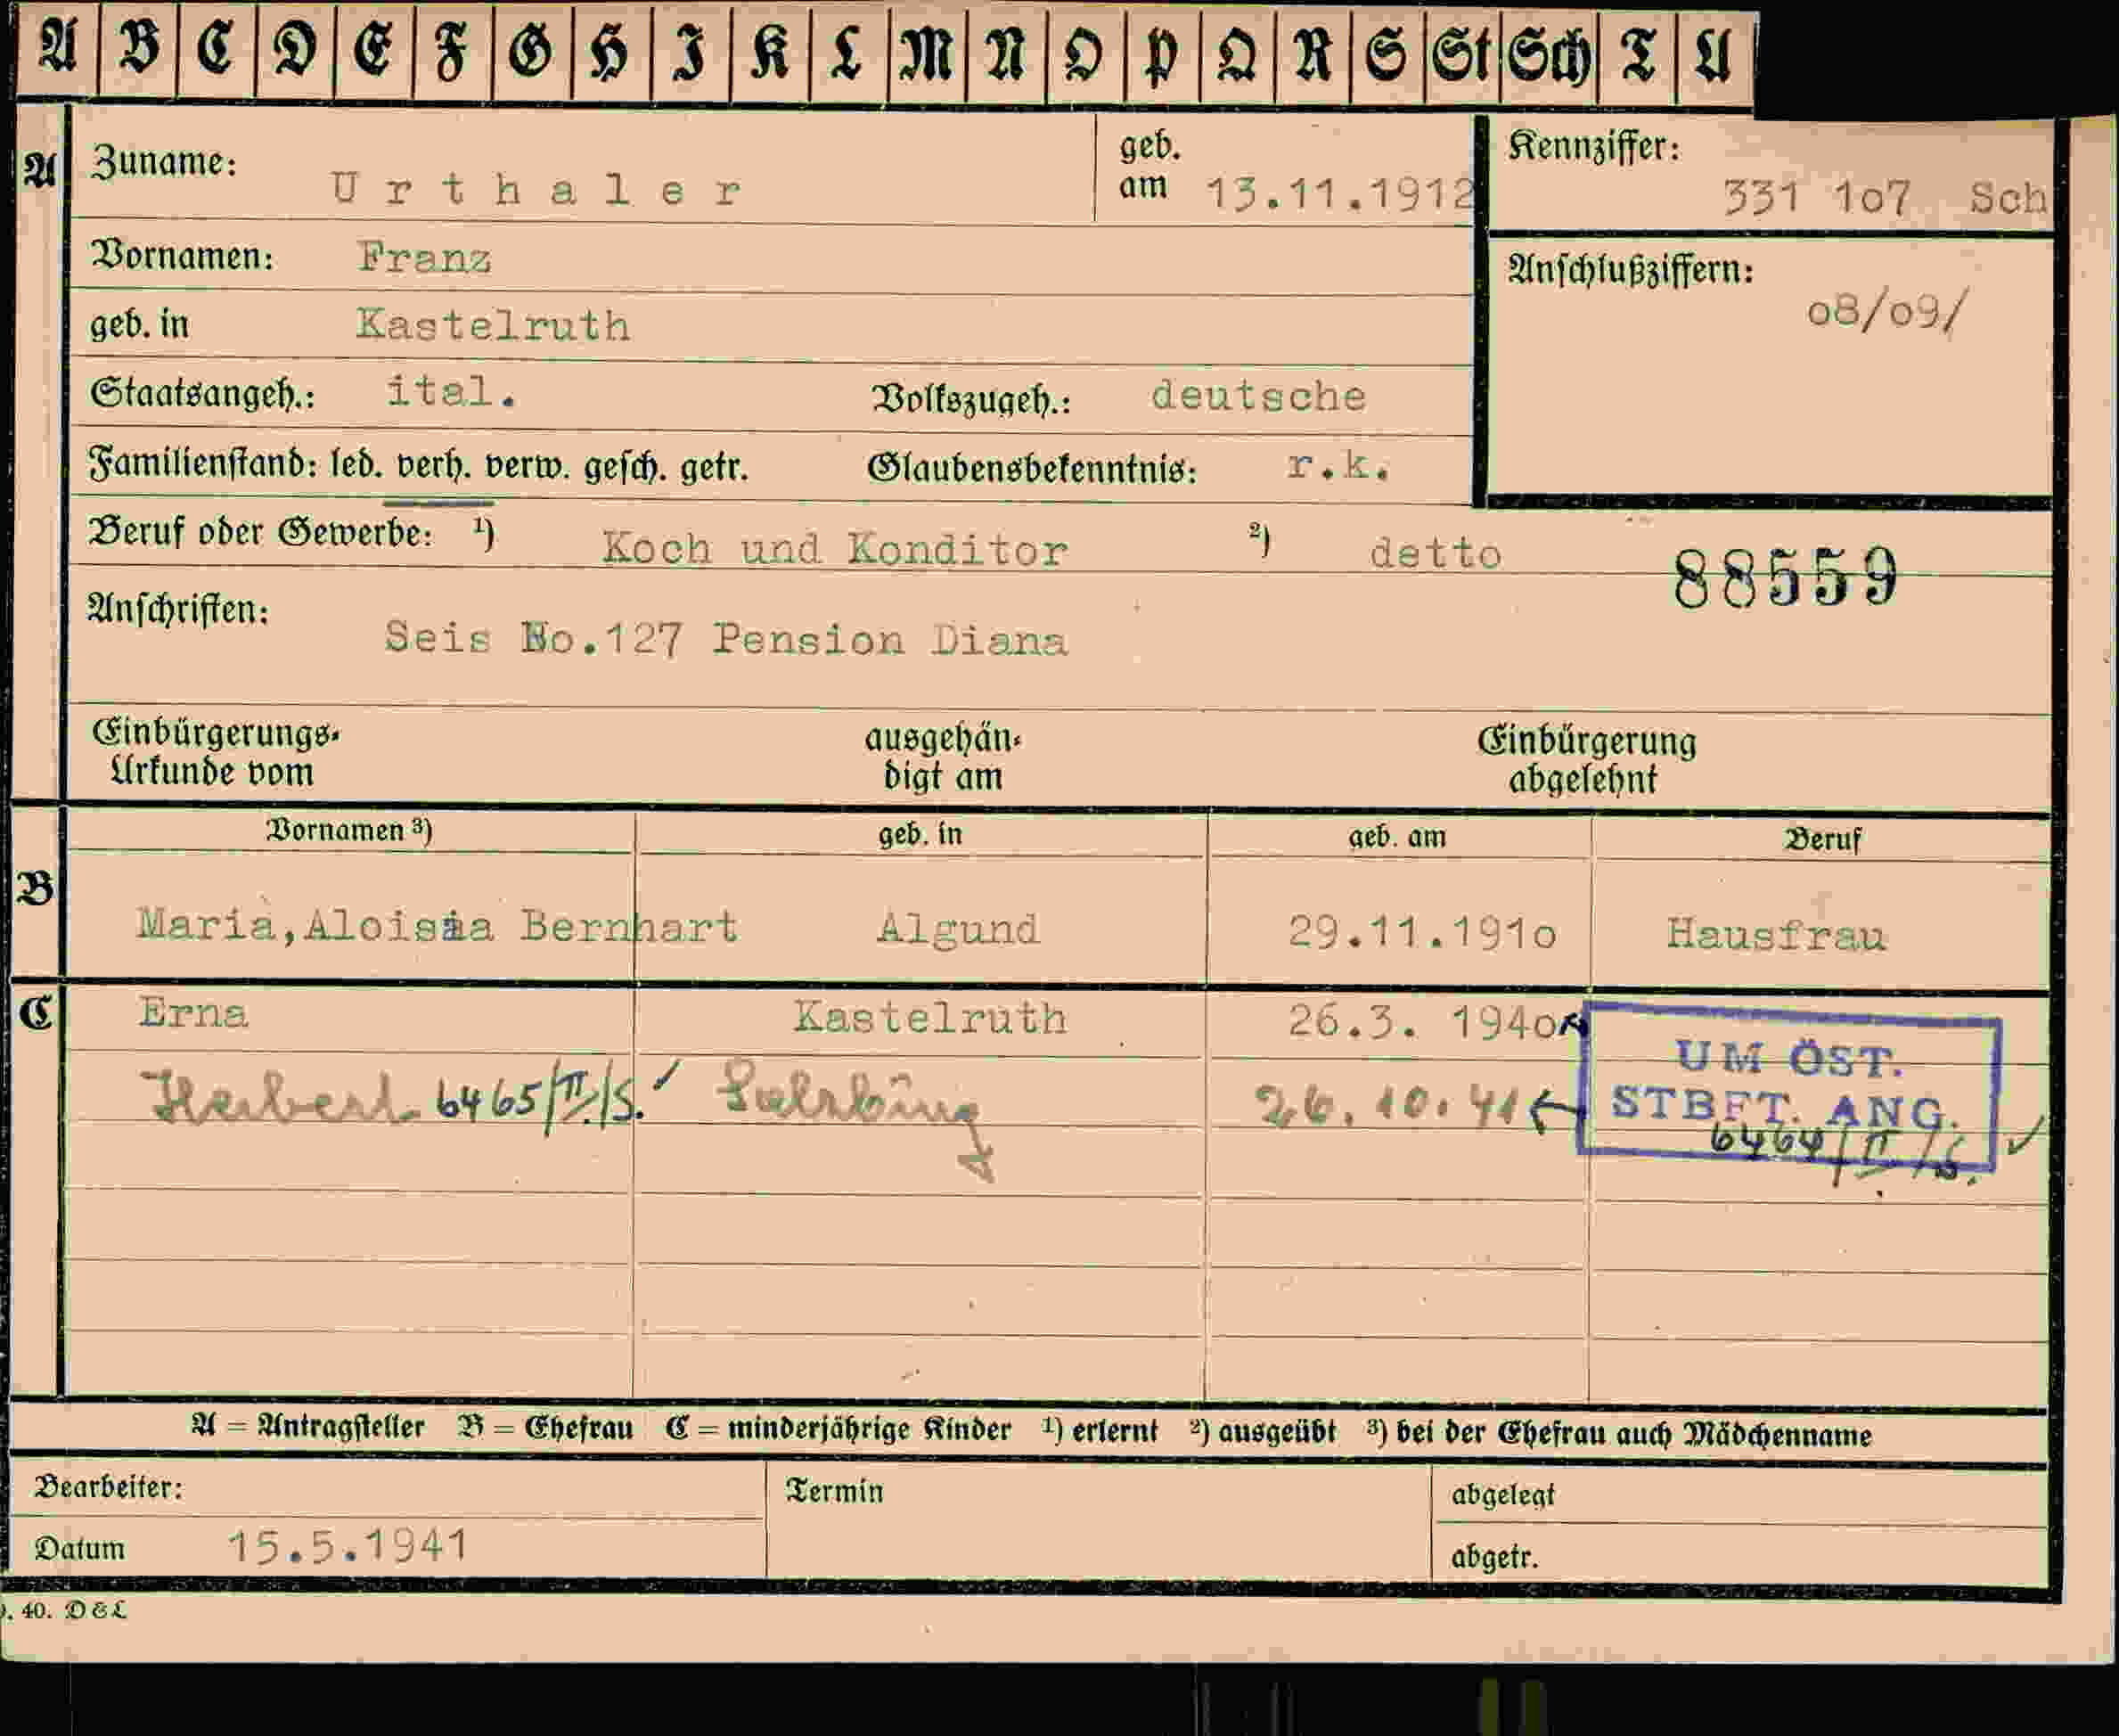 A B C D E F G H I K L M N O P Q R S St Sch T U
A Zuname: Urthaler geb. am 13.11.1912 Kennziffer: 331 1o7 Sch
Vornamen: Franz Anschlußziffern: o8/o9/
geb. in Kastelruth
Staatsangeh.: ital. Volkszugeh.: deutsche
Familienstand: led. verh. verw. gesch. getr. Glaubensbekenntnis: r.k.
Beruf oder Gewerbe: ¹) Koch und Konditor ²) detto
88559
Anschriften: Seis No.127 Pension Diana
Einbürgerungs- ausgehän- Einbürgerung
Urkunde vom digt am abgelehnt
B Vornamen ³) geb. in geb. am Beruf
Maria,Aloisia Bernhart Algund 29.11.191o Hausfrau
C Erna Kastelruth 26.3. 194o
UM ÖST.
Herbert 6465/II/S. Salzburg 26.10.41 STBFT. ANG.
6464/II/S.
A = Antragsteller B = Ehefrau C = minderjährige Kinder ¹) erlernt ²) ausgeübt ³) bei der Ehefrau auch Mädchenname
Bearbeiter: Termin abgelegt
Datum 15.5.1941 abgetr.
. 40. D & L